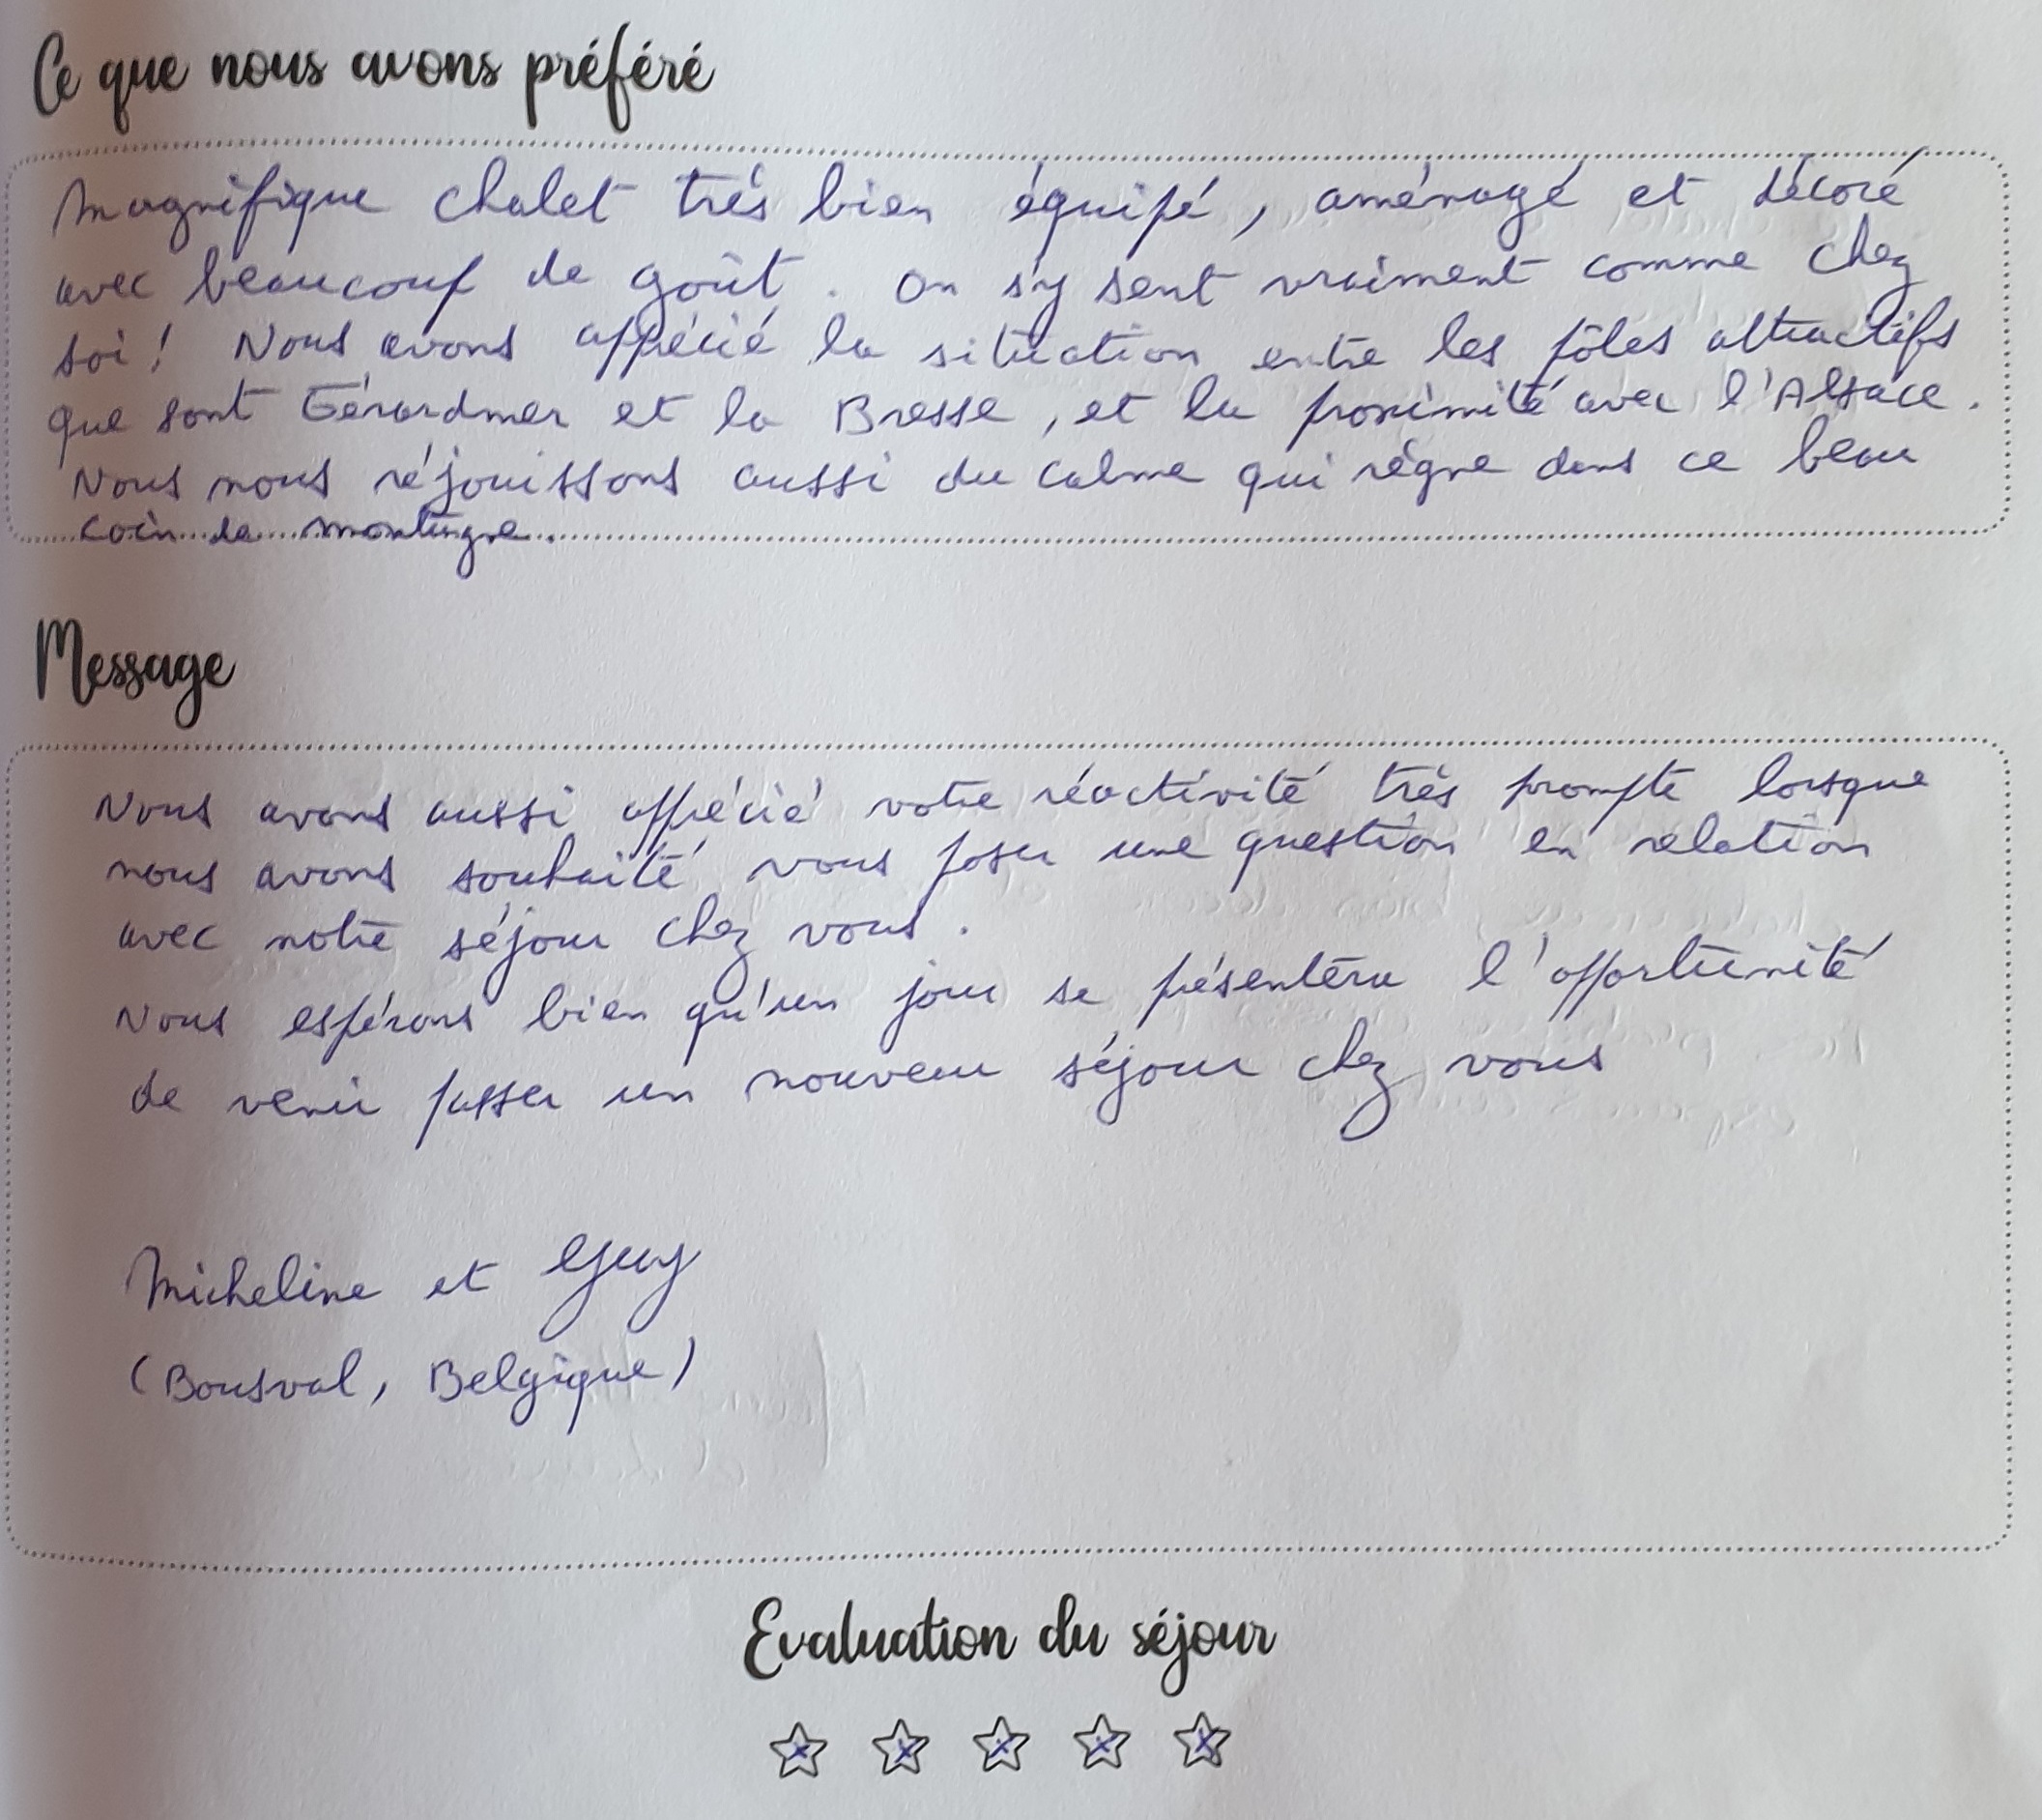 Ce que nous avons préféré
Magnifique chalet très bien équipé, aménagé et décoré
avec beaucoup de goût. On s'y sent vraiment comme chez
soi! Nous avons apprécié la situation entre les pôles attractifs
que sont Gérardmer et la Bresse, et la proximité avec l'Alsace.
Nous nous réjouissons aussi du calme qui règne dans ce beau
coin de montagne.
Message
Nous avons aussi apprécié votre réactivité très prompte lorsque
nous avons souhaité vous poser une question en relation
avec notre séjour chez vous.
Nous espérons bien qu'un jour se présentera l'opportunité
de venir passer un nouveau séjour chez vous
Micheline et Guy
(Bousval, Belgique)
Evaluation du séjour